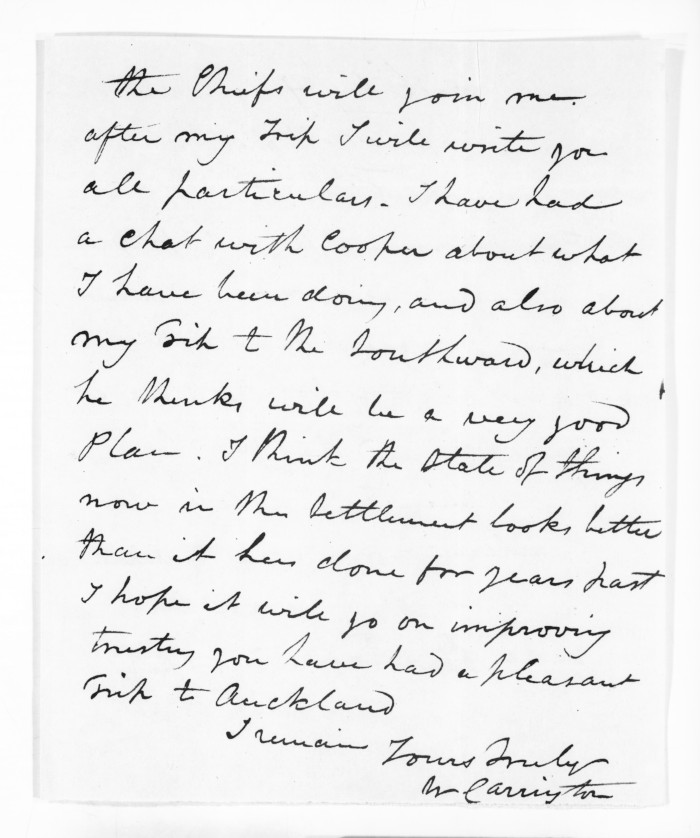 the Chiefs will join me.
after my Trip I will write you
all particulars. I have had
a chat with Cooper about what
I have been doing, and also about
my Trip to the Southward, which
he thinks will be a very good
Plan. I think the State of things
now in this Settlement looks better
than it has done for years past
I hope it will go on improving
trusting you have had a pleasant
Trip to Auckland
I remain Yours Truly
W Carrington